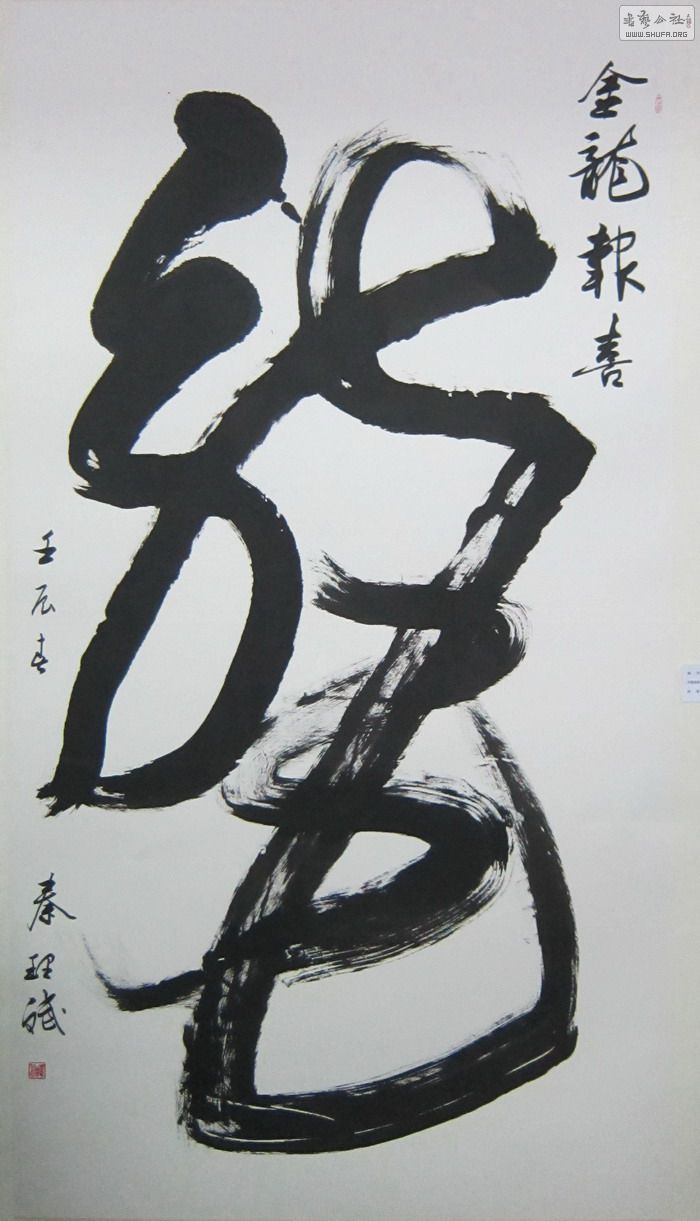 金龍報喜
龍
壬辰春
秦理斌
書藝公社
WWW.SHUFA.ORG